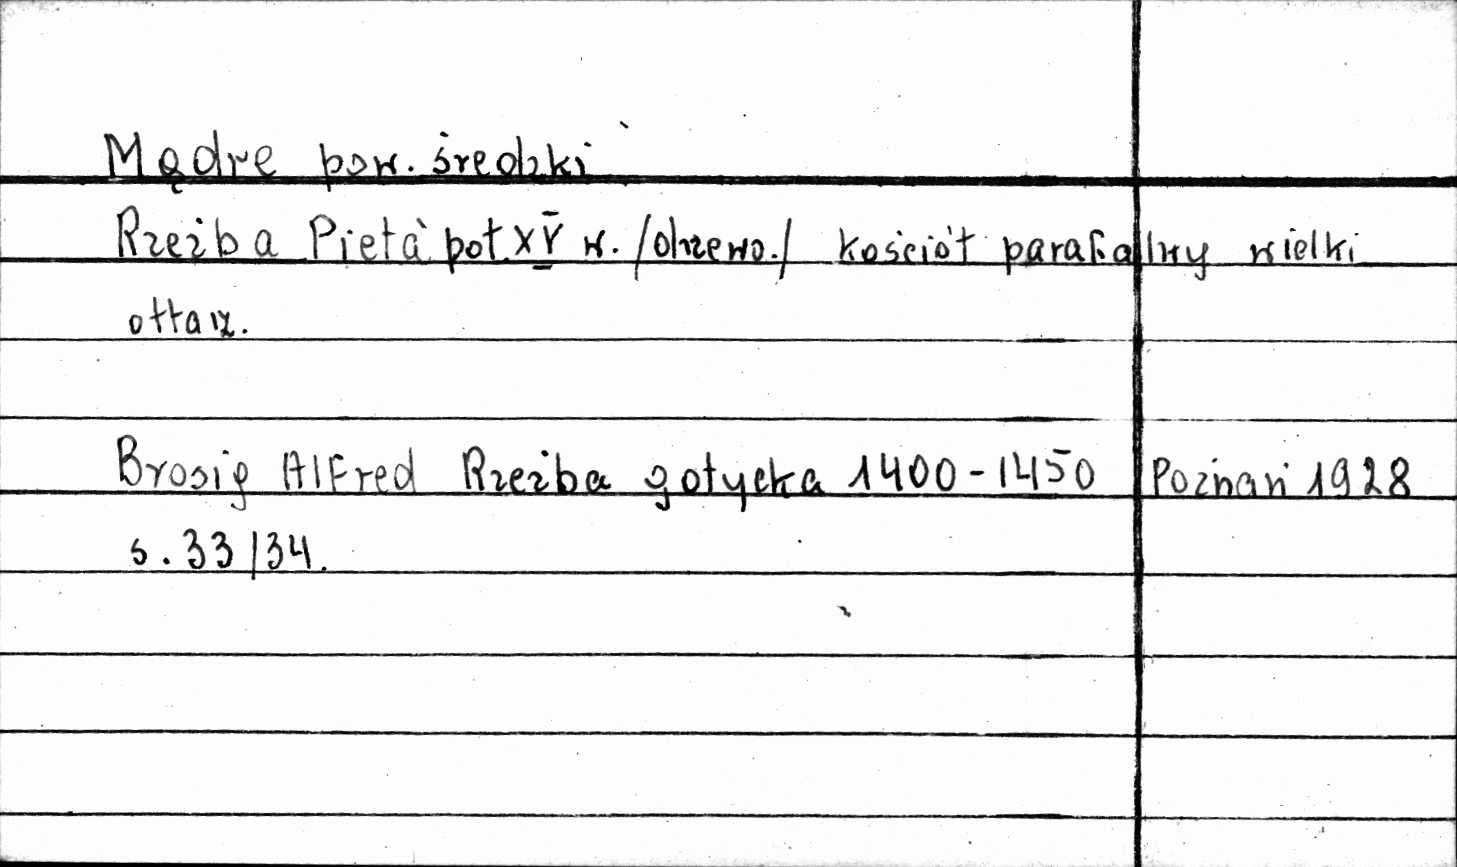 Mądre pow. średzki
Rzeźba Pietà poł. XV w. /drzewo./ kościół parafialny wielki
ołtarz.
Brosig Alfred Rzeźba gotycka 1400-1450 Poznań 1928
s. 33/34.